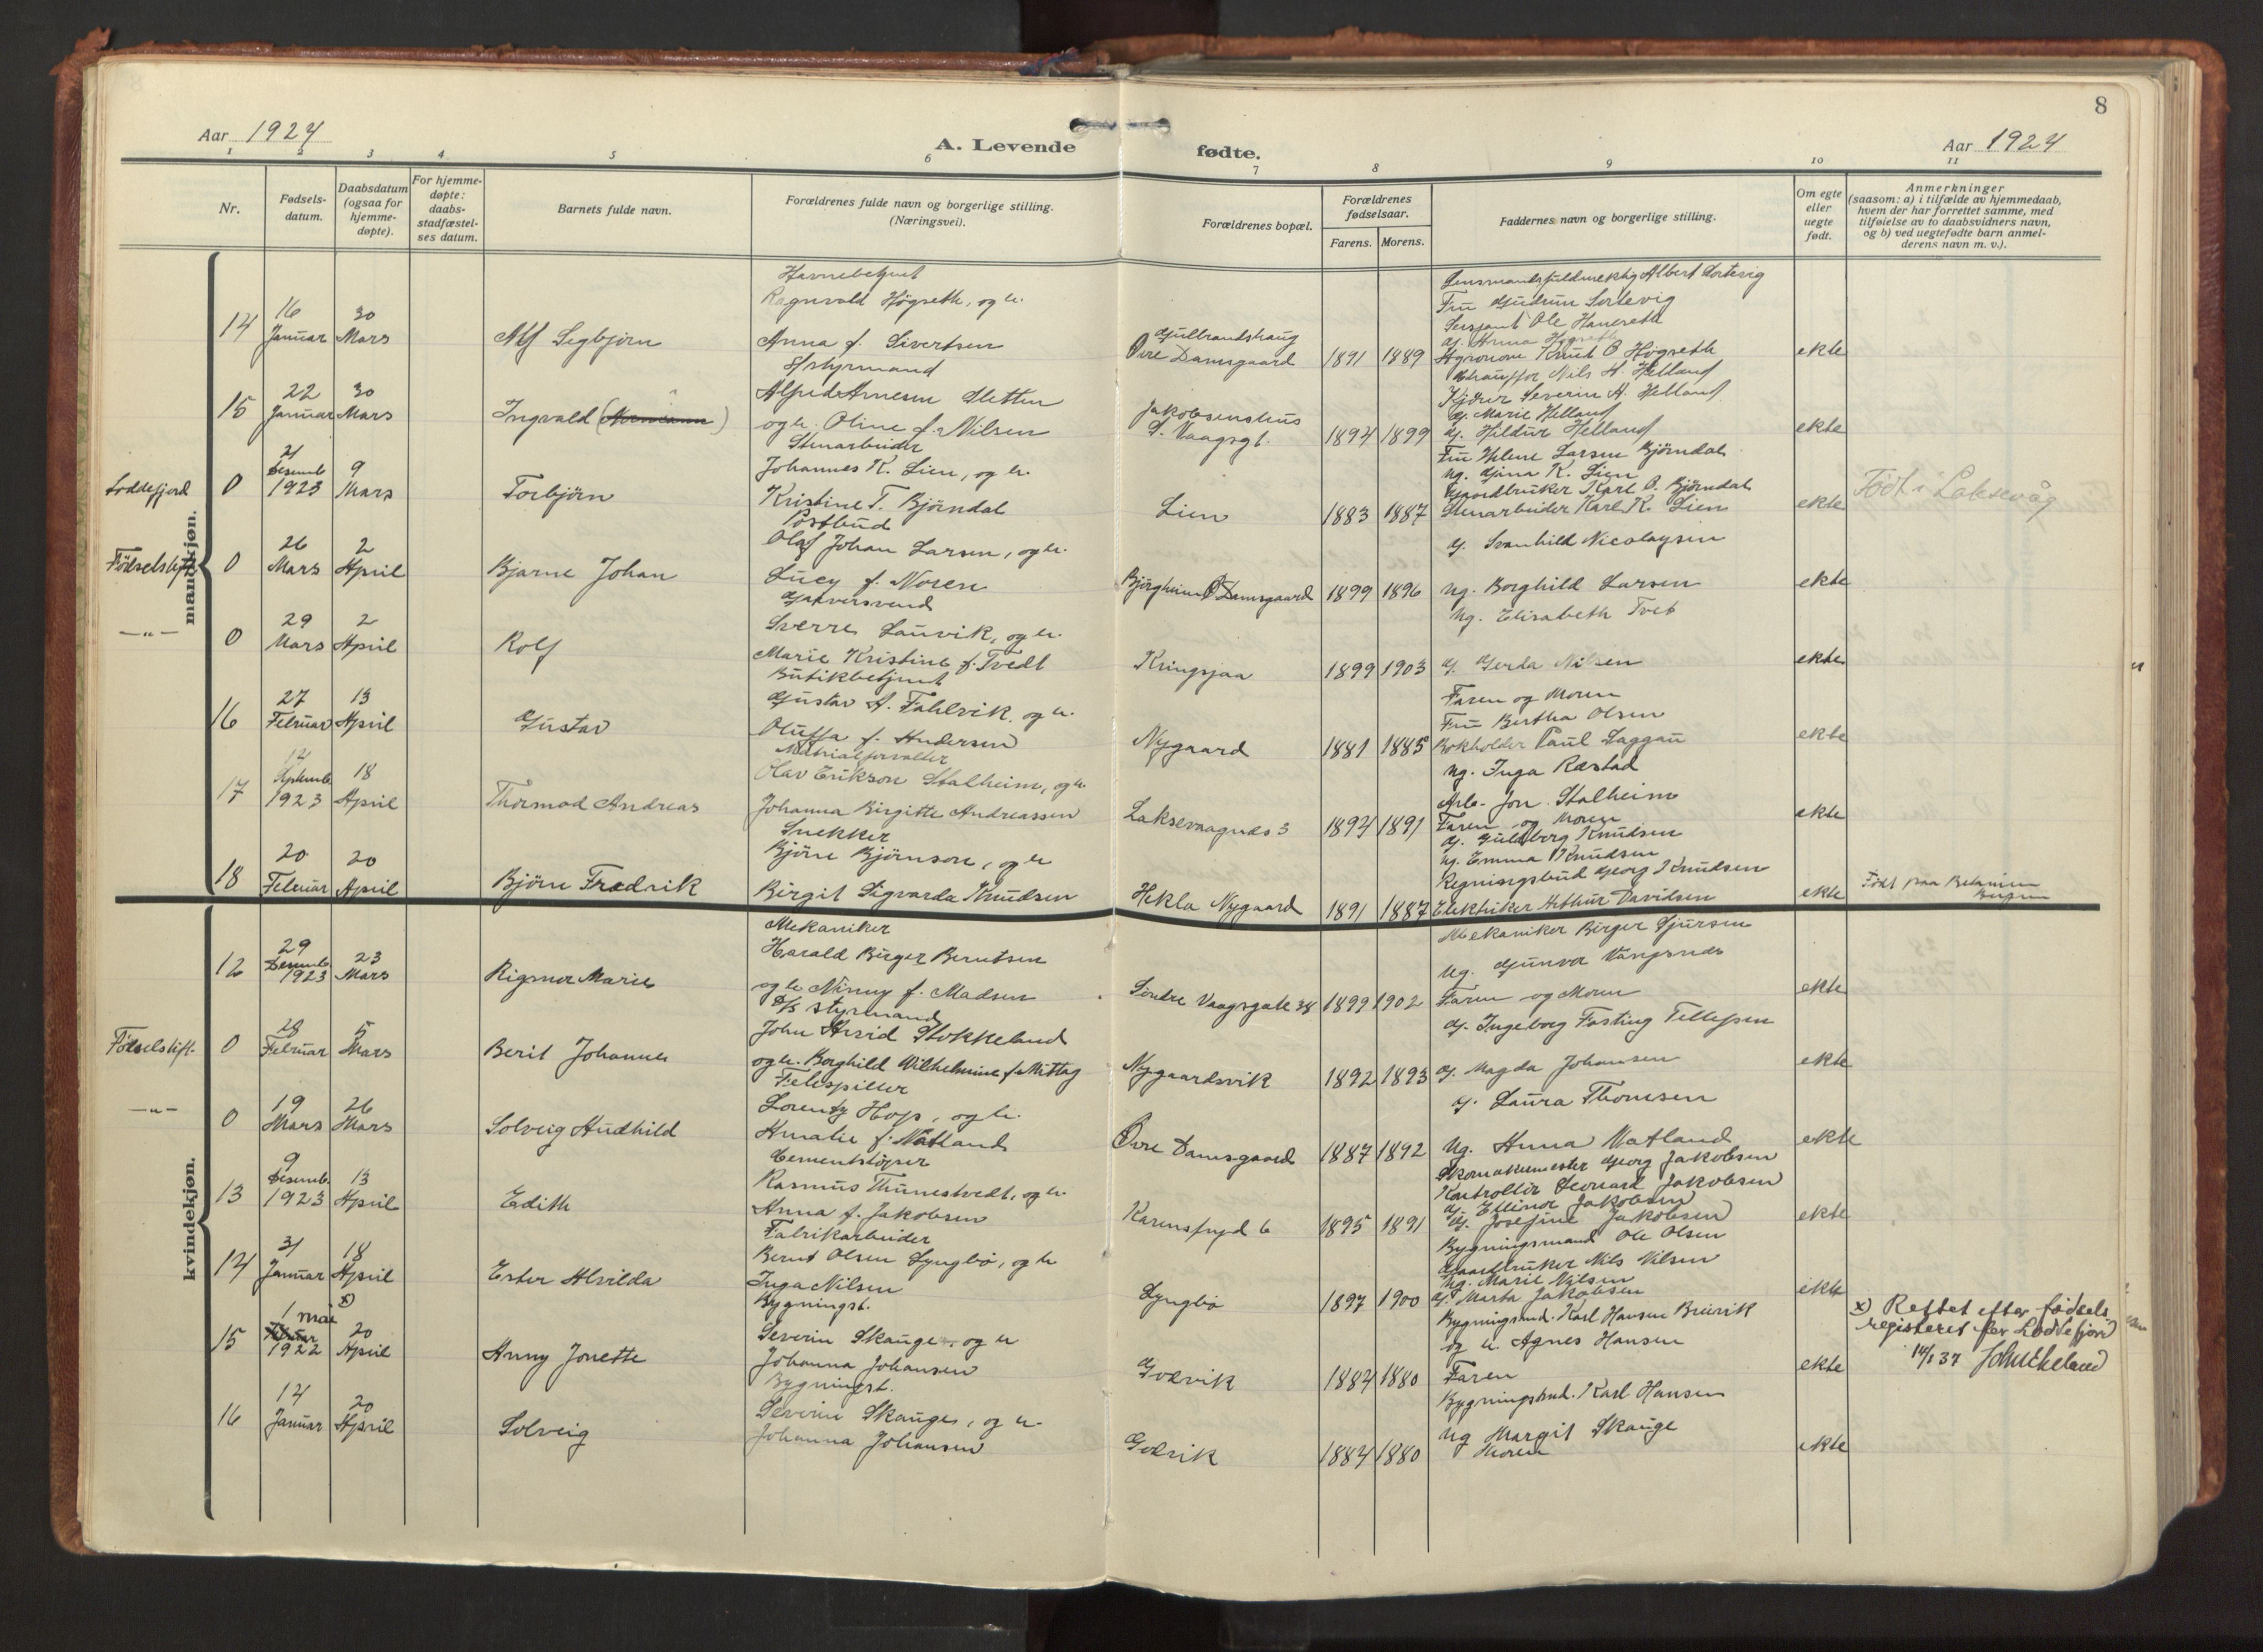 8
Aar 1924
A. Levende
fødte.
Aar 1924
1
2
3
4
5
6
7
8
9
10
11
Nr.
Fødsels-
datum.
Daabsdatum
(ogsaa for
hjemme-
døpte).
For hjemme-
døpte:
daabs-
stadfæstel-
ses datum.
Barnets fulde navn.
Forældrenes fulde navn og borgerlige stilling.
(Næringsvei).
Forældrenes bopæl.
Forældrenes
fødselsaar.
Farens.
Morens.
Faddernes navn og borgerlige stilling.
Om egte
eller
uegte
født.
Anmerkninger
(saasom: a) i tilfælde av hjemmedaab,
hvem der har forrettet samme, med
tilføielse av to daabsvidners navn,
og b) ved uegtefødte barn anmel-
derens navn m. v.).
mandkjøn.
14
16
Januar
30
Mars
Alf Sigbjørn
Havnebetjent
Ragnvald Høgseth, og h.
Anna f. Sivertsen
Gulbrandshaug
Øvre Damsgaard
1891
1889
Lensmandsfuldmektig Albert Sortevig
Fru Gudrun Sortevig
Sersjant Ole Hanereth
Agronom Knut O Høgseth
ekte
15
22
Januar
30
Mars
Ingvald
Styrmand
Alfred Arnesen Sletten
og h. Oline f. Nilsen
Jakobsenshus
S. Vaagsgt.
1894
1899
Chauffør Nils A. Helland
Kjører Severin A. Helland
g. Marie Helland
g. Hildur Helland
ekte
Loddefjord
0
21
Desemb
1923
9
Mars
Torbjörn
Stenarbeider
Johannes K. Lien, og h.
Kristine T. Bjørndal
Lien
1883
1887
Fru Helene Larsen Bjørndal
ug. Gina K. Lien
Gaardbruker Karl O. Bjørndal
Stenarbeider Karl K. Lien
ekte
Født i Laksevåg
Fødselstift
0
26
Mars
2
April
Bjarne Johan
Postbud
Olaf Johan Larsen, og h.
Lucy f. Noren
Bjørgheim Ø Damsgaard
1899
1896
g. Svanhild Nicolaysen
ug. Borghild Larsen
ekte
—„—
0
29
Mars
2
April
Rolf
Garversvend
Sverre Lauvik, og h.
Marie Kristine f. Tvedt
Kringsjaa
1899
1903
ug. Elisabeth Tvet
g. Gerda Nilsen
ekte
16
27
Februar
13
April
Gustav
Butikbetjent
Gustav A. Fahlvik, og h.
Oluffa f. Andersen
Nygaard
1881
1885
Faren og Moren
Fru Bertha Olsen
Bokholder Paul Daggau
ekte
17
14
Septemb
1923
18
April
Thormod Andreas
Materialforvalter
Olav Erikson Stalheim, og h.
Johanna Birgitte Andreassen
Laksevaagnes 3
1894
1891
ug. Inga Rastad
Arb. Jon Stalheim
Faren og Moren
ekte
18
20
Februar
20
April
Bjørn Fredrik
Snekker
Bjørn Bjørnson, og h
Birgit Sigvarda Knudsen
Hekla Nygaard
1891
1887
g. Guldborg Knudsen
ug. Emma Knudsen
Regningsbud Georg Knudsen
Elektriker Arthur Davidsen
ekte
Født paa Betanien
Bergen
kvindekjøn.
12
29
Desemb
1923
23
Mars
Rigmor Marie
Mekaniker
Harald Birger Berntsen
og h. Ninny f. Madsen
Søndre Vaagsgate 38
1899
1902
Mekaniker Birger Sjursen
ug. Gunvor Vangsnes
Faren og Moren
ekte
Fødselstift.
0
28
Februar
5
Mars
Berit Johanne
D/S Styrmand
John Arvid Stokkeland
og h. Borghild Wilhelmine f. Mittag
Nygaardsvik
1892
1893
g. Ingeborg Fasting Tellefsen
g. Magda Johansen
ekte
—„—
0
19
Mars
26
Mars
Solveig Audhild
Felespiller
Lorentz Hop, og h.
Amalie f. Natland
Øvre Damsgaard
1887
1892
g. Laura Thomsen
ug. Anna Natland
ekte
13
9
Desemb.
1923
13
April
Edith
Cementstøper
Rasmus Thunestvedt, og h.
Anna f. Jakobsen
Karensfryd 6
1895
1891
Skomakermester Georg Jakobsen
Kontrollør Leonard Jakobsen
g. Ellinor Jakobsen
g. Josefine Jakobsen
ekte
14
31
Januar
18
April
Ester Alvilda
Fabrikarbeider
Bernt Olsen Lyngbø, og h
Inga Nilsen
Lyngbø
1897
1900
Bygningsmand Ole Olsen
Gaardbruker Nils Nilsen
ug. Marie Nilsen
g. Marta Jakobsen
ekte
15
1 mai x)
Februar
1922
20
April
Anny Jonette
Bygningst.
Severin Skauge og h
Johanna Johansen
Godvik
1884
1880
Bygningsmd. Karl Hansen Breivik
og h. Agnes Hansen
Faren
ekte
x) Rettet efter fødsels-
registeret for Loddefjord
14/1 37
16
14
Januar
20
April
Solveig
Bygningst.
Severin Skauge, og h.
Johanna Johansen
Godvik
1884
1880
Bygningsmd. Karl Hansen
ug Margit Skauge
Moren
ekte